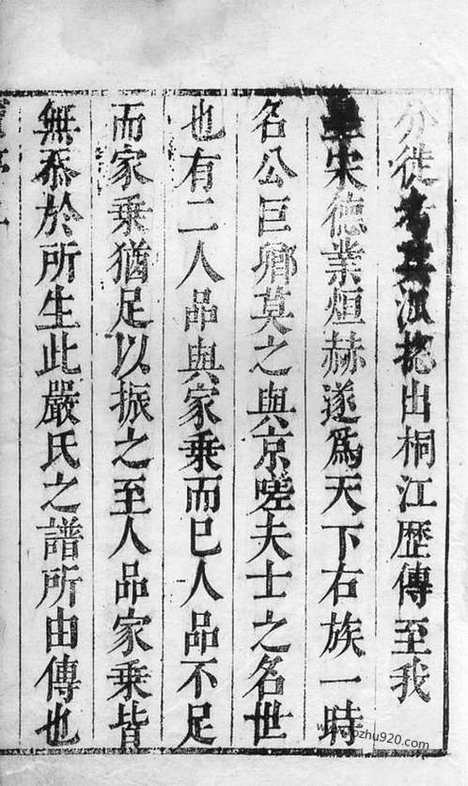 分徙
派總出桐江歷傳至我
宋德業烜赫遂爲天下右族一時
名公巨卿莫之與京嗟夫士之名世
也有二人品與家乗而已人品不足
而家乗猶足以振之至人品家乗皆
無忝於所生此嚴氏之譜所由傳也